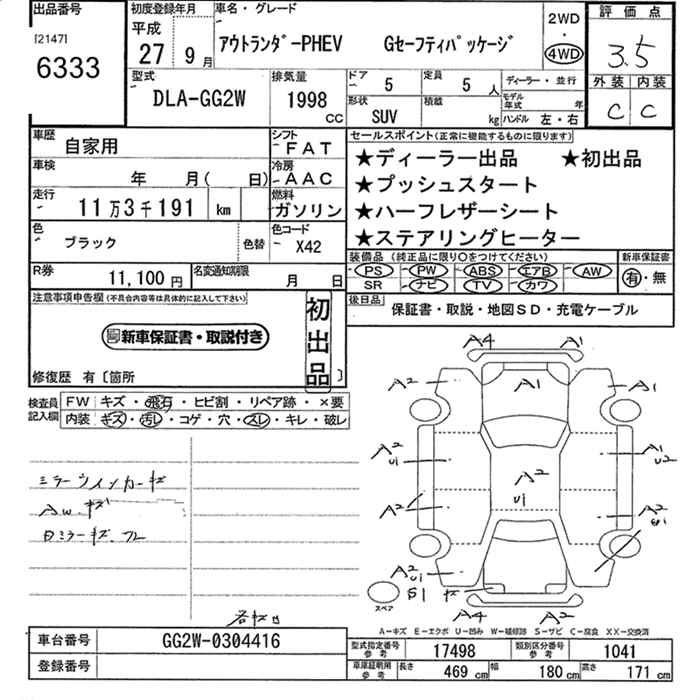 出品番号 初度登録年月 車名・グレード 2WD 評価点
[2147] 平成
6333 27 9月 アウトランダｰPHEV Gセーフティパッケージ 4WD 3.5
型式 排気量 ドア 5 定員 5人 ディーラー・並行 外装 内装
DLA-GG2W 1998 CC 形状 SUV 積載 kg モデル年式 年 C C
ハンドル 左・右
車歴 自家用 シフト FAT セールスポイント(正常に機能するものに限ります)
車検 年 月( 日) 冷房 AAC ★ディーラー出品 ★初出品
走行 11万3千191 km 燃料 ガソリン ★プッシュスタート
★ハーフレザーシート
色 ブラック 色替 色コード X42 ★ステアリングヒーター
R券 11,100円 名変通知期限 月 日 装備品(純正品に限り○をつけてください) 新車保証書
PS PW ABS エアB AW 有・無
SR ナビ TV カワ
注意事項申告欄(不具合内容等は具体的に記入して下さい) 初出品 後日品 保証書・取説・地図SD・充電ケーブル
新車保証書・取説付き
修復歴 有〔箇所 〕
検査員記入欄 FW キズ・飛石・ヒビ割・リペア跡・×要
内装 キズ・汚レ・コゲ・穴・スレ・キレ・破レ
A4 A1
A2 A1 A1
A2 U1 A1 U2
A2 U1
A2 A2
A2 U1
S1 キズ
A4 A2
ミラーウインカーキズ
AW キズ
スペア
A-キズ E-エクボ U-凹み W-補修跡 S-サビ C-腐食 XX-交換済
車台番号 GG2W-0304416 型式指定番号 参考 17498 類別区分番号 参考 1041
登録番号 車庫証明用 参考 長さ 469cm 幅 180cm 高さ 171cm